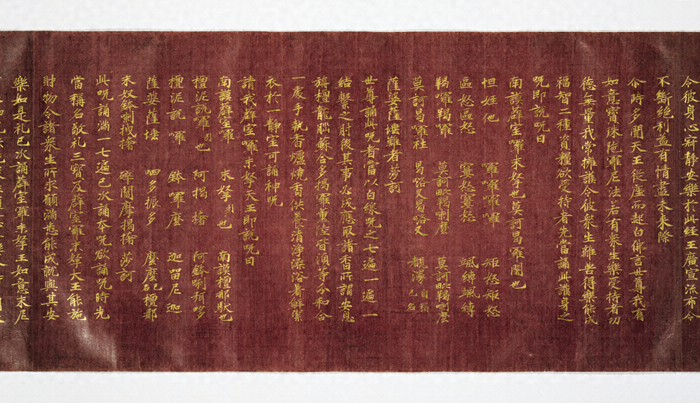 不斷絕利益有情盡未來際
尒時多聞天王從座而起白佛言世尊我有
如意寶珠陀羅尼法若有衆生樂受持者功
德無量我常擁護令彼衆生離苦得樂能成
福智二種資糧欲受持者先當誦此護身之
呪即說呪曰
南謨薜室囉末拏也莫訶曷囉闍也
怛姪他　囉囉囉囉　矩怒矩怒
區怒區怒　寠怒寠怒　颯縛颯縛
羯囉羯囉　莫訶毗羯喇麼　莫訶毗羯喇麼
莫訶曷囉社　覩漫自稱己名
薩婆薩埵難者莎訶
世尊誦此呪者當以白線呪之七遍一遍一
結繫之肘後其事必成應取諸香所謂安息
栴檀龍腦蘇合多揭羅薰陸皆須等分和合
一處手執香爐燒香供養清淨澡浴著鮮潔
衣於一靜室可誦神呪
請我薜室囉末拏天王即說呪曰
南謨薜室囉　末拏引也　南謨檀那馱也
檀泥說囉引也　阿揭撦　阿鉢喇弭哆
檀泥說囉　鉢囉麼　迦留尼迦
薩婆薩埵　呬多振多　麼麼己名檀那
末奴鉢喇拽撦　碎閻摩揭撦　莎訶
此呪誦滿一七遍已次誦本呪欲誦呪時先
當稱名敬禮三寶及薜室囉末拏大王能施
財物令諸衆生所求願滿悉能成就與其安
樂如是禮已次誦薜室囉末拏王如意末尼